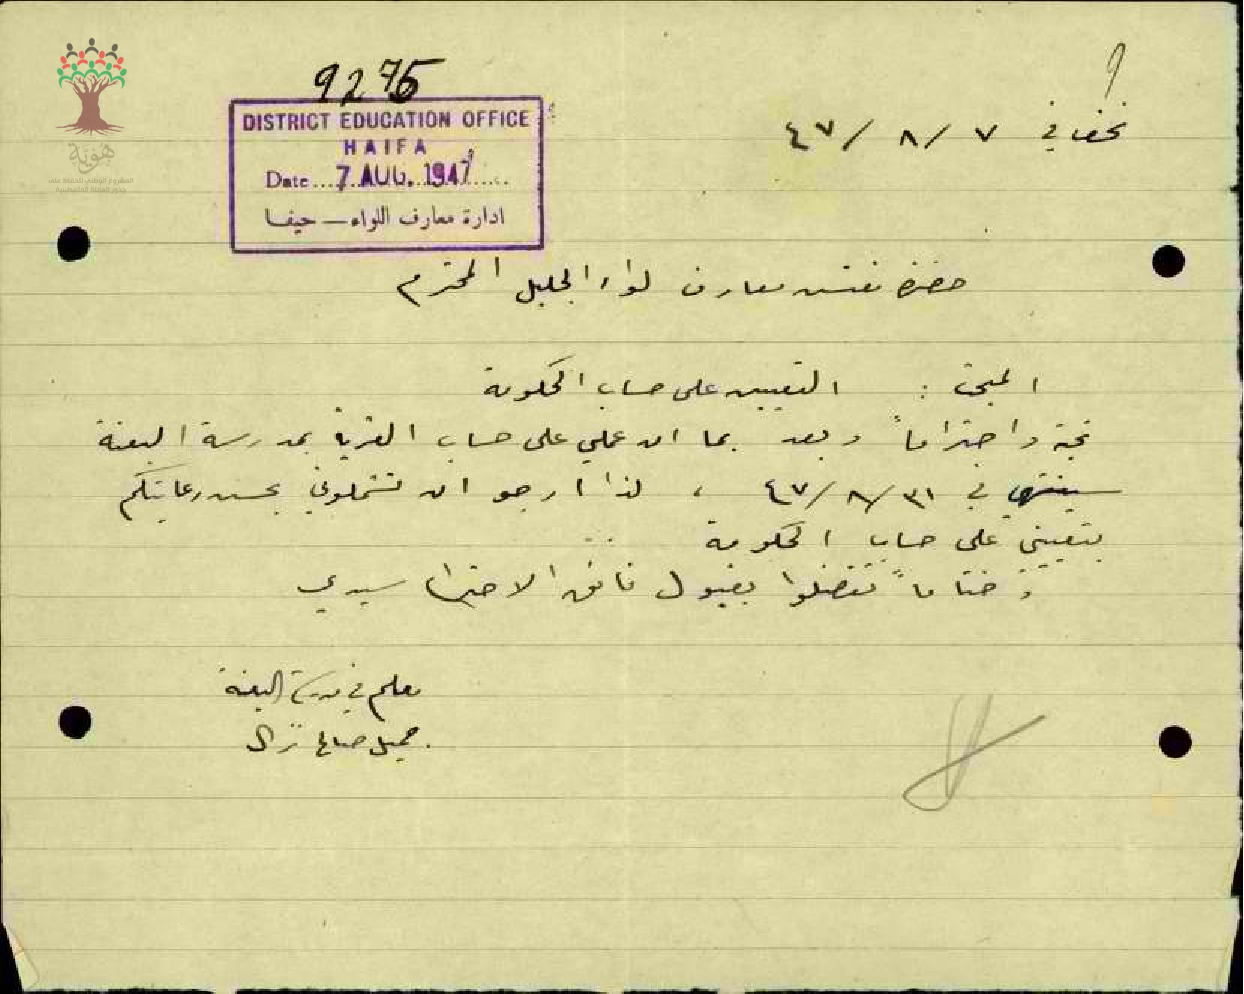 9275
DISTRICT EDUCATION OFFICE
HAIFA
Date....7 AUG. 1947.....
ادارة معارف اللواء — حيفا
هوية
المشروع الوطني للحفاظ على
جذور العائلة الفلسطينية
نحف في ٧ / ٨ / ٤٧
حضرة مفتش معارف لواء الجليل المحترم
المبحث : التعيين على حساب الحكومة
تحية واحتراماً وبعد بما ان عملي على حساب القرية بمدرسة البعنة
سينتهي في ٣١ / ٨ / ٤٧ ، لذا ارجو ان تشملوني بحسن رعايتكم
بتعييني على حساب الحكومة
وختاماً تفضلوا بقبول فائق الاحترام سيدي
معلم في مدرسة البعنة
جميل صالح